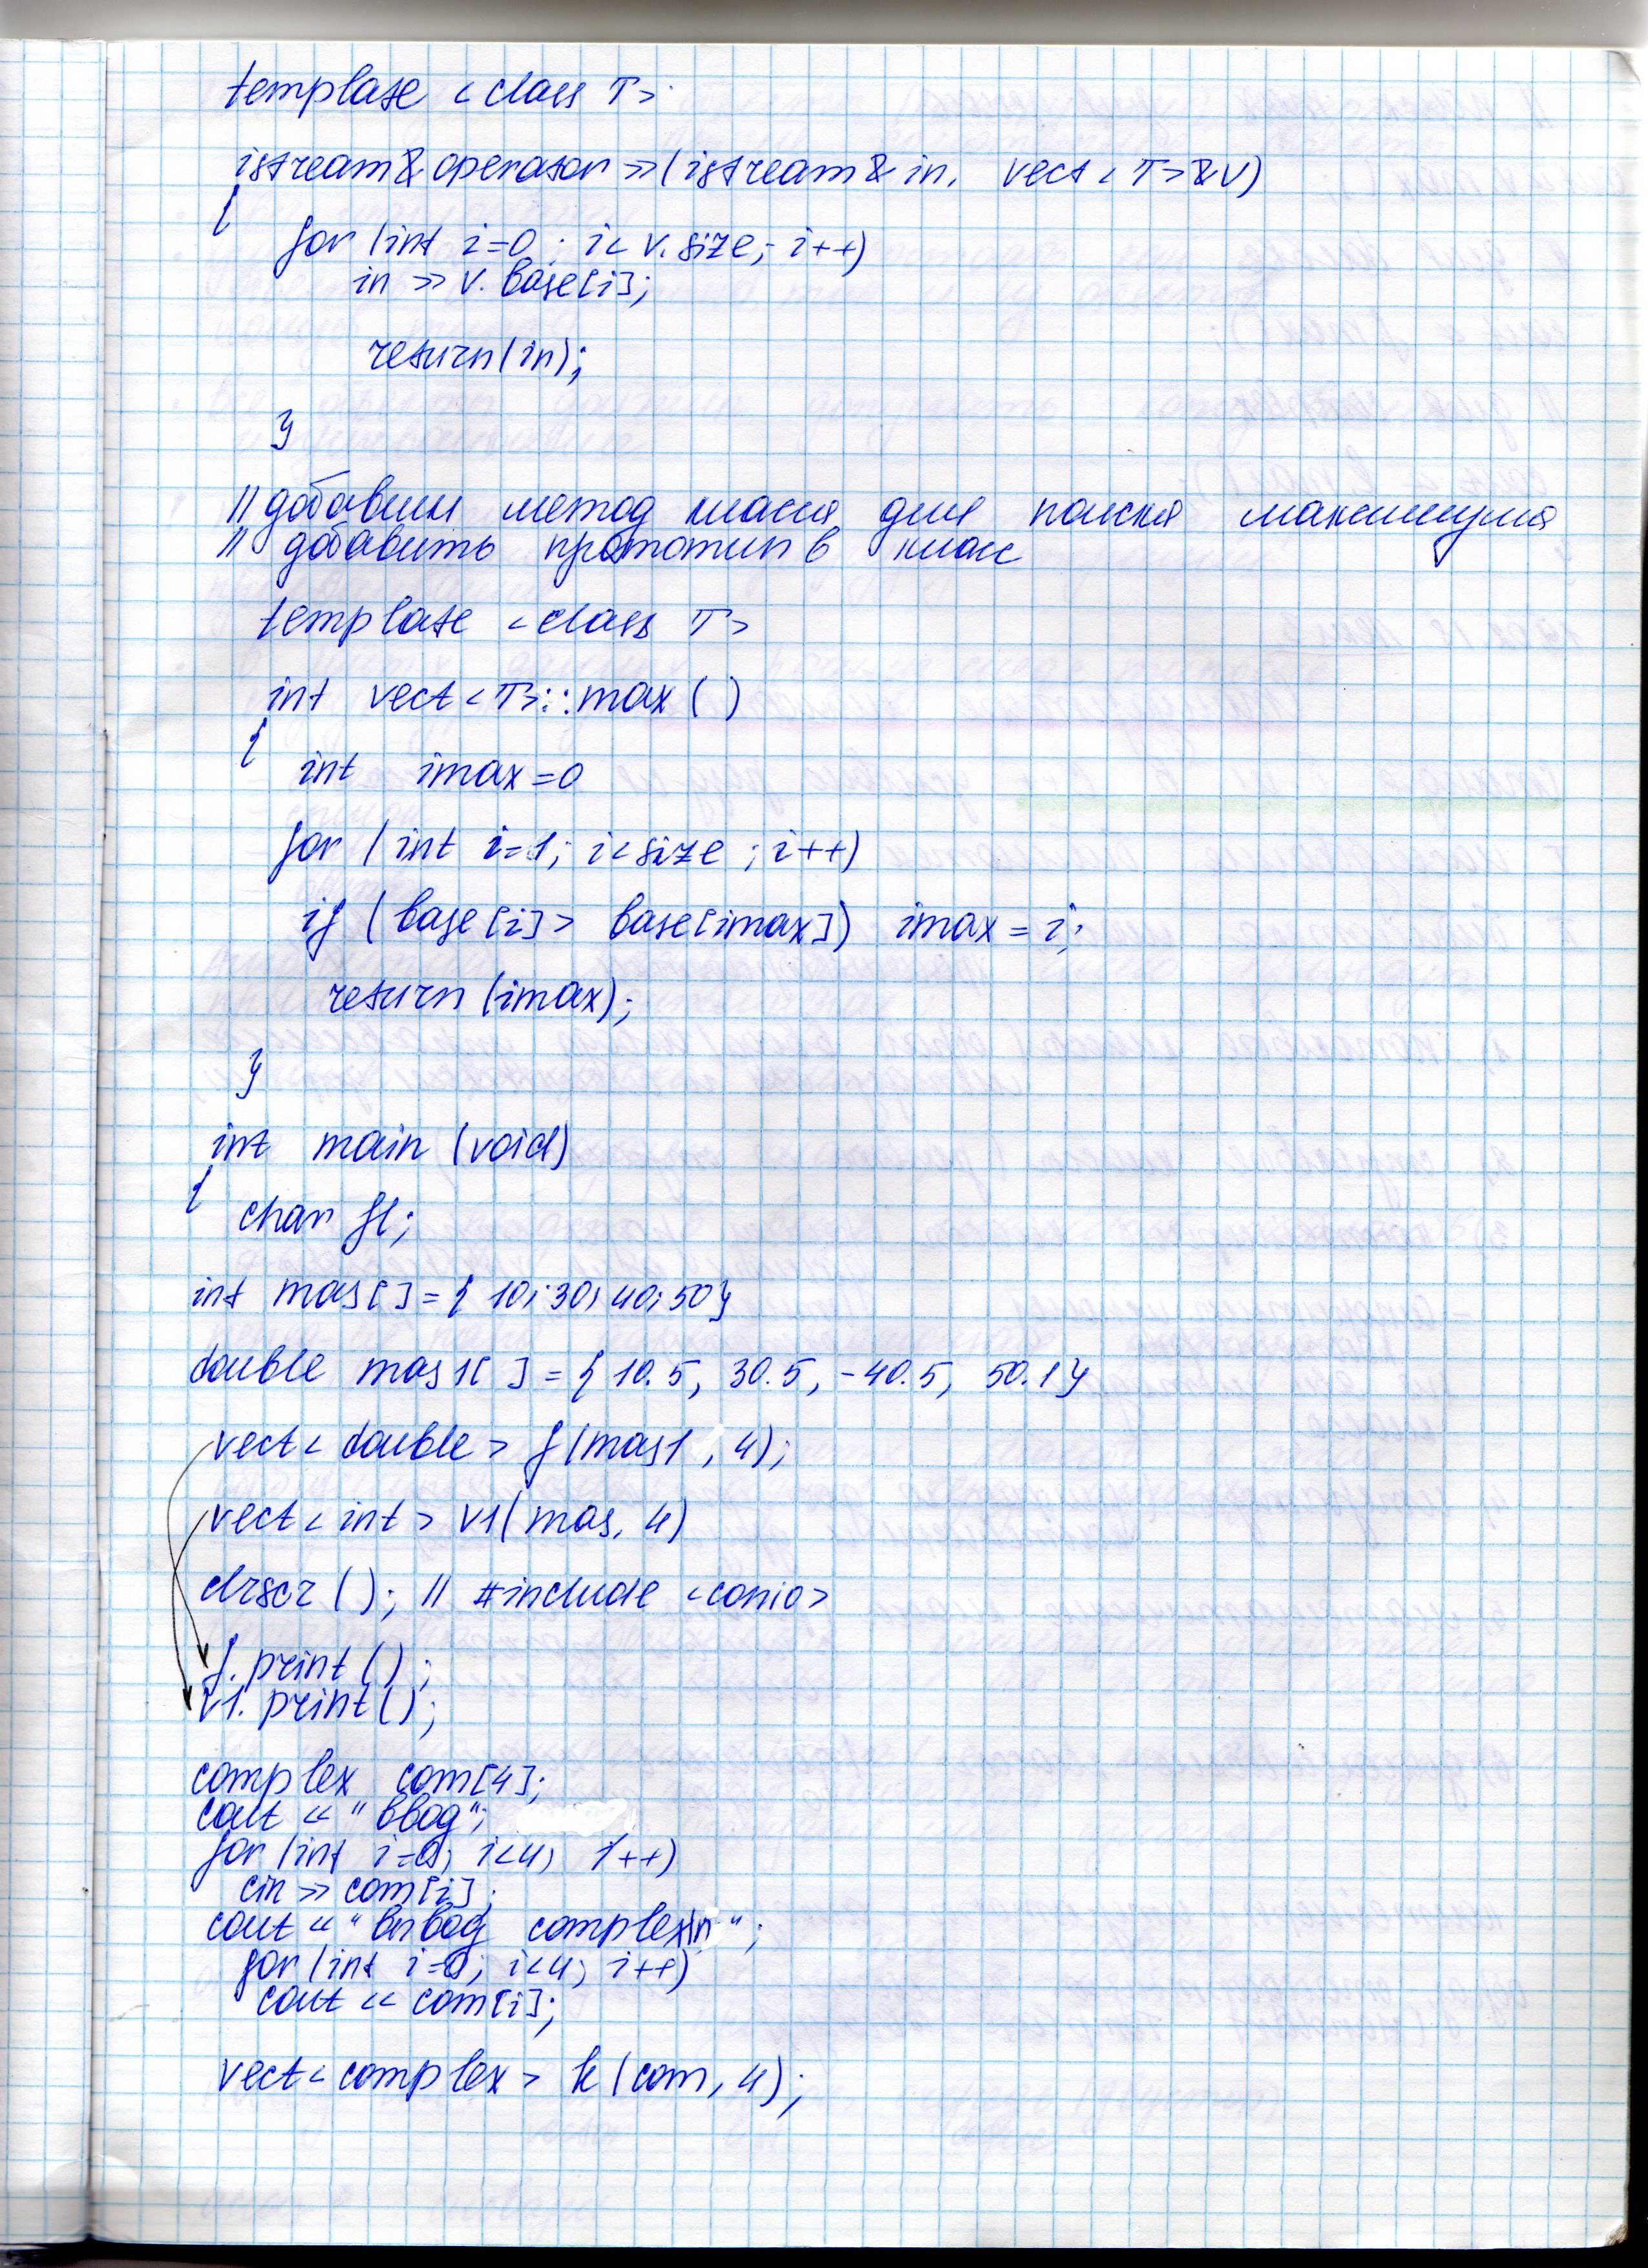 template <class T>
istream& operator >> (istream& in, vect <T>& v)
{
for (int i=0; i< v.size; i++)
in >> v.base[i];
return(in);
}
// добавим метод класса для поиска максимума
// добавить прототип в класс
template <class T>
int vect<T>::max ( )
{
int imax=0
for (int i=1; i<size; i++)
if (base[i] > base[imax]) imax = i;
return (imax);
}
int main (void)
{
char fl;
int mas[ ] = { 10; 30; 40; 50}
double mas1[ ] = { 10.5, 30.5, -40.5, 50.1}
vect< double > f(mas1, 4);
vect< int > v1(mas, 4)
clrscr ( ); // #include <conio>
f.print ( );
v1.print( );
complex com[4];
cout << "ввод";
for (int i=0; i<4; i++)
cin >> com[i];
cout << "вывод complex\n";
for (int i=0; i<4; i++)
cout << com[i];
vect< complex > k (com, 4);